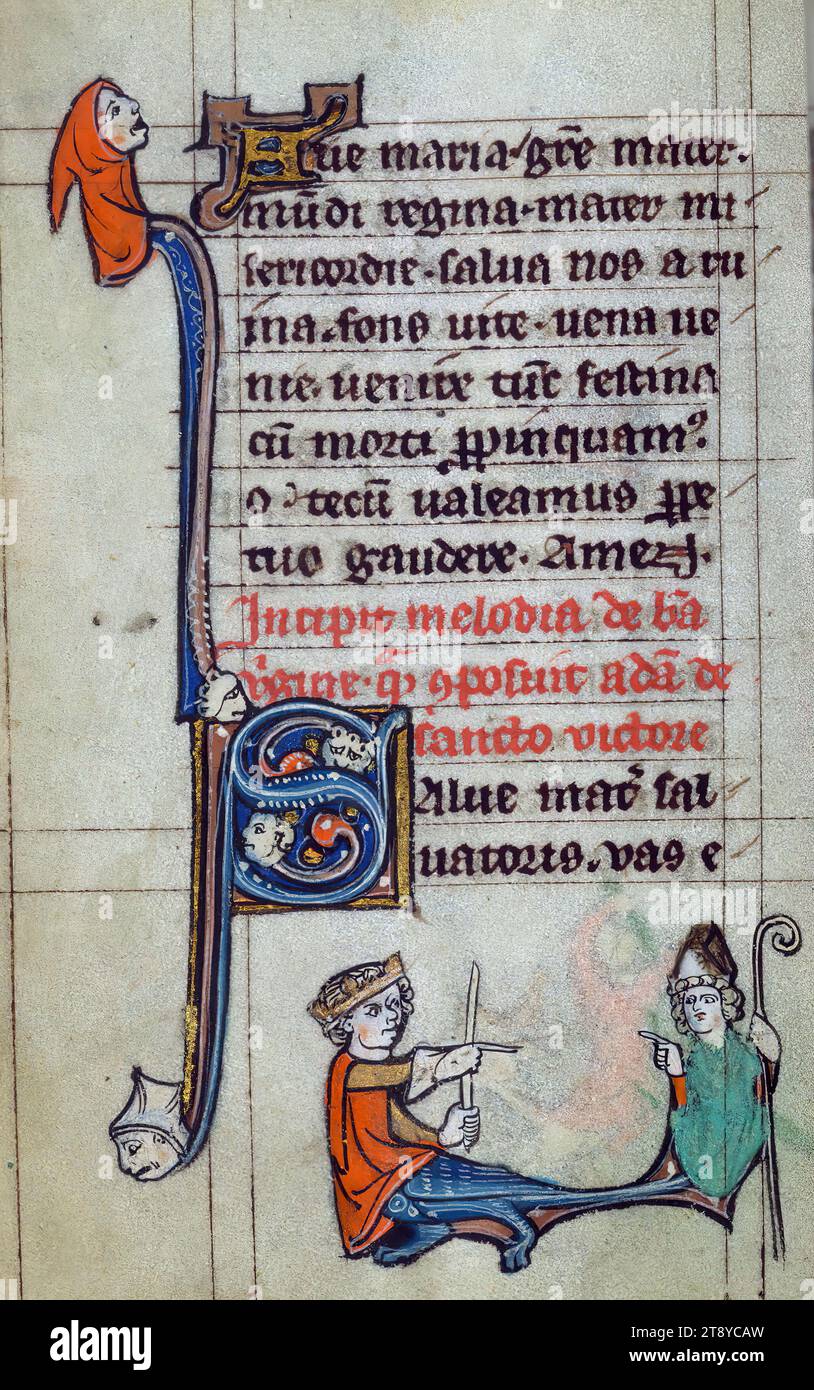 Aue maria·gr̄e mater·
mūdi regina·mater mi
sericordie·salua nos a ru
ina·fons uite·uena ue
nie·uenire tūc festina
cū morti ꝓpinquamꝰ.
tecū ualeamus ꝑpe
tuo gaudere. Amen.
Incipit melodia de b̄a
uͥgine·qͣ̄ ꝯposuit adā de
sancto uictore
SAlue mat̄ sal
uatoris·vas e
alamy
Image ID: 2T8YCAW
www.alamy.com